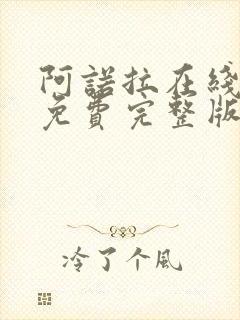 阿諾拉在线
免費完整版
冷了个風